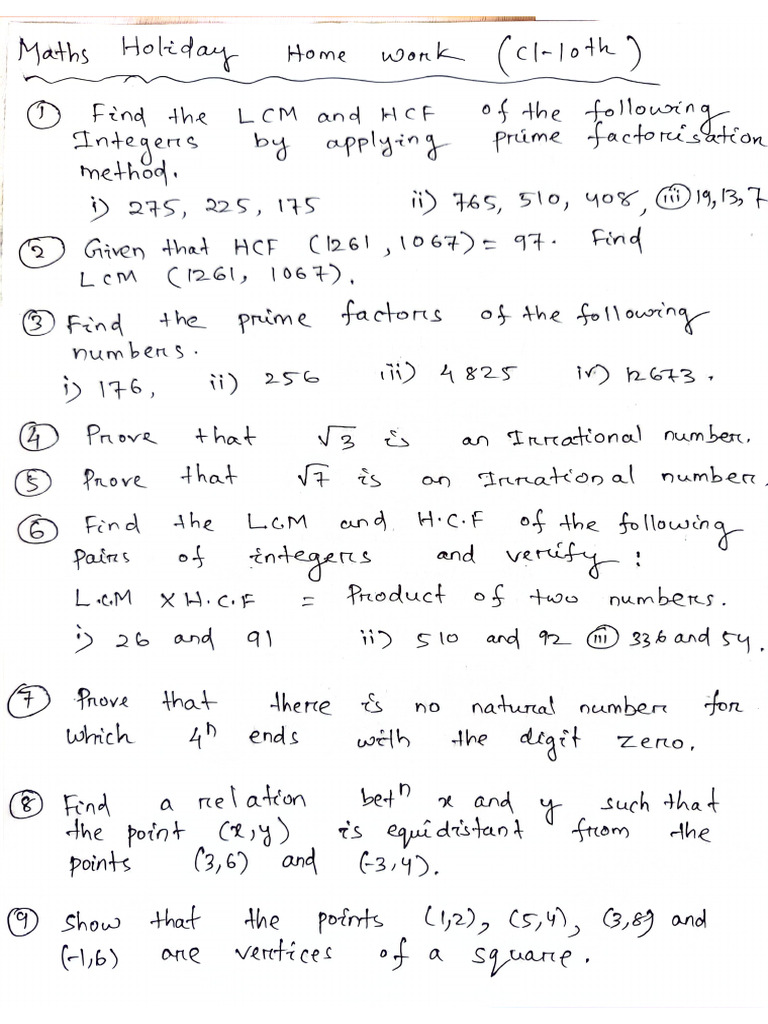 Maths Holiday Home Work (Cl-10th)
① Find the LCM and HCF of the following
Integers by applying prime factorisation
method.
i) 275, 225, 175 ii) 765, 510, 408, ⓘⓘⓘ 19, 13, 7
② Given that HCF (1261, 1067) = 97. Find
LCM (1261, 1067).
③ Find the prime factors of the following
numbers.
i) 176, ii) 256 iii) 4825 iv) 12673.
④ Prove that √3 is an Irrational number.
⑤ Prove that √7 is an Irrational number.
⑥ Find the L.C.M and H.C.F of the following
pairs of integers and verify:
L.C.M X H.C.F = Product of two numbers.
i) 26 and 91 ii) 510 and 92 ⓘⓘⓘ 336 and 54.
⑦ Prove that there is no natural number for
which 4ⁿ ends with the digit zero.
⑧ Find a relation betⁿ x and y such that
the point (x,y) is equidistant from the
points (3,6) and (-3,4).
⑨ Show that the points (1,2), (5,4), (3,8) and
(-1,6) are vertices of a square.